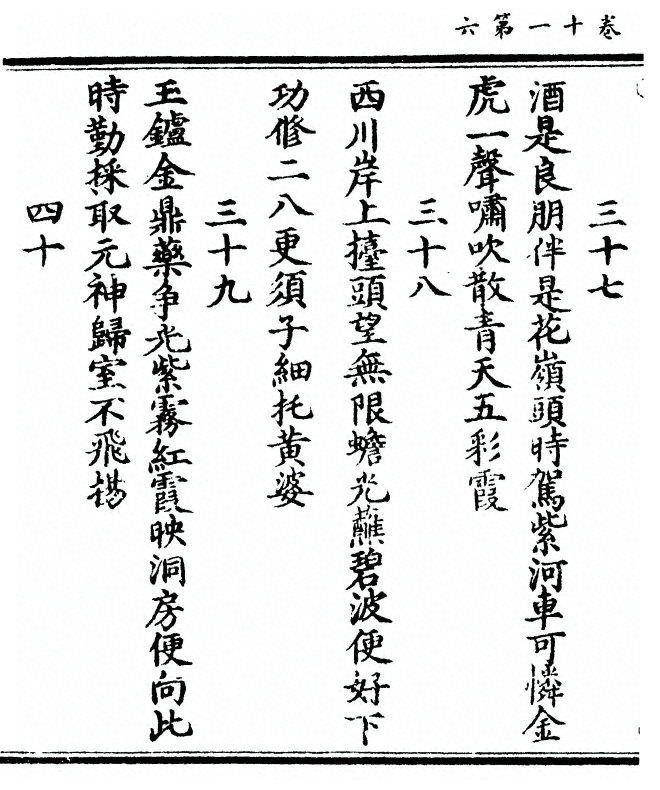 卷十一第六
三十七
酒是良朋伴是花嶺頭時駕紫河車可憐金
虎一聲嘯吹散青天五彩霞
三十八
西川岸上擡頭望無限蟾光蘸碧波便好下
功脩二八更須子細托黃婆
三十九
玉鑪金鼎藥争光紫霧紅霞映洞房便向此
時勤採取元神歸室不飛揚
四十